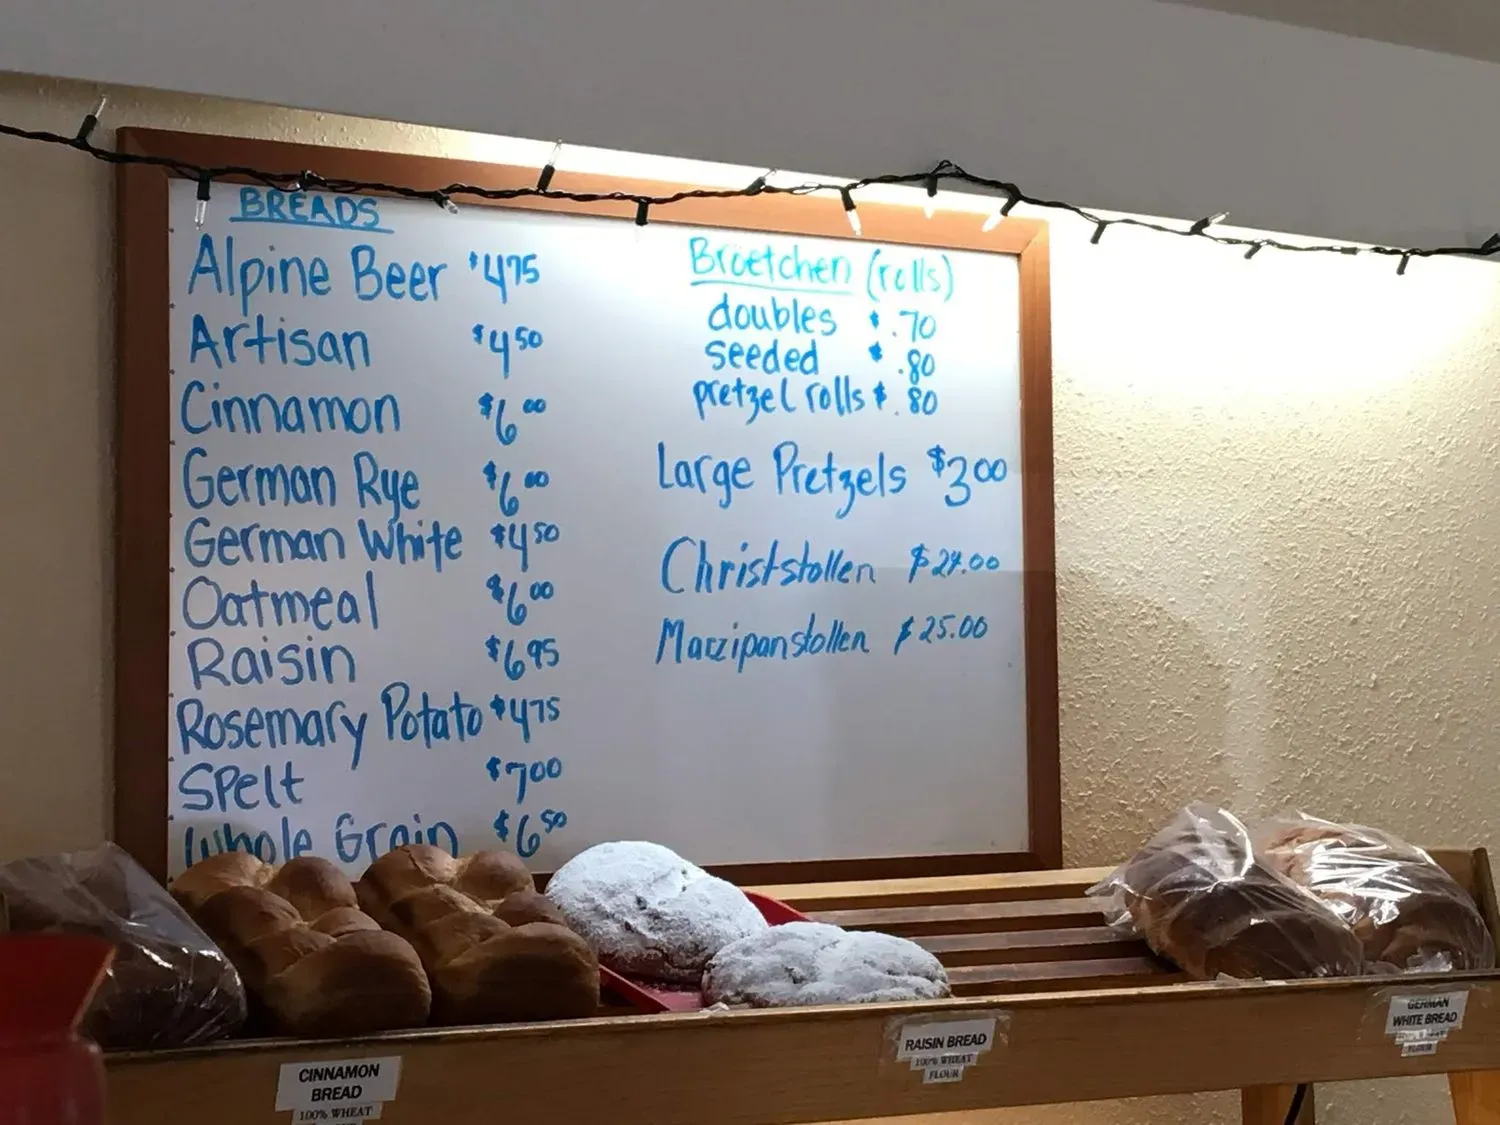 BREADS
Alpine Beer $4.75
Artisan $4.50
Cinnamon $6.00
German Rye $6.00
German White $4.50
Oatmeal $6.00
Raisin $6.95
Rosemary Potato $4.75
Spelt $7.00
Whole Grain $6.50
Broetchen (rolls)
doubles $.70
seeded $.80
pretzel rolls $.80
Large Pretzels $3.00
Christstollen $24.00
Marzipanstollen $25.00
CINNAMON
BREAD
100% WHEAT
RAISIN BREAD
100% WHEAT
FLOUR
GERMAN
WHITE BREAD
FLOUR